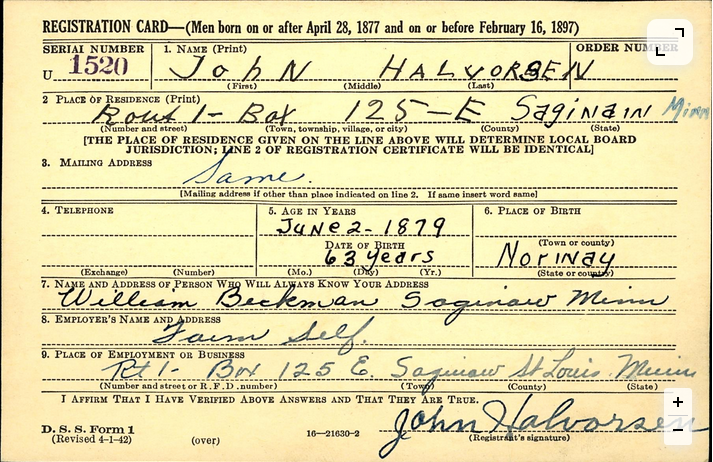 REGISTRATION CARD—(Men born on or after April 28, 1877 and on or before February 16, 1897)
SERIAL NUMBER 1. NAME (Print) ORDER NUMBER
U 1520 JohN HALVORSEN
(First) (Middle) (Last)
2 PLACE OF RESIDENCE (Print)
Rout 1- Box 125-E Saginaw Minn
(Number and street) (Town, township, village, or city) (County) (State)
[THE PLACE OF RESIDENCE GIVEN ON THE LINE ABOVE WILL DETERMINE LOCAL BOARD
JURISDICTION; LINE 2 OF REGISTRATION CERTIFICATE WILL BE IDENTICAL]
3. MAILING ADDRESS
Same.
[Mailing address if other than place indicated on line 2. If same insert word same]
4. TELEPHONE 5. AGE IN YEARS 6. PLACE OF BIRTH
JUNE 2- 1879
DATE OF BIRTH (Town or county)
63 years Norway
(Exchange) (Number) (Mo.) (Day) (Yr.) (State or country)
7. NAME AND ADDRESS OF PERSON WHO WILL ALWAYS KNOW YOUR ADDRESS
William Beckman Saginaw Minn
8. EMPLOYER'S NAME AND ADDRESS
Farm Self.
9. PLACE OF EMPLOYMENT OR BUSINESS
Rt 1- Box 125 E. Saginaw St Louis Minn
(Number and street or R. F. D. number) (Town) (County) (State)
I AFFIRM THAT I HAVE VERIFIED ABOVE ANSWERS AND THAT THEY ARE TRUE.
John Halvorsen
D. S. S. Form 1
(Revised 4-1-42) (over) 16—21630-2 (Registrant's signature)